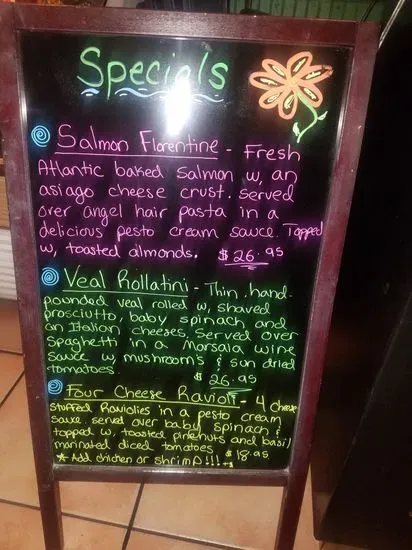 Specials
Salmon Florentine - Fresh
Atlantic baked Salmon w, an
asiago cheese crust. Served
over angel hair pasta in a
delicious pesto cream sauce. Topped
w, toasted almonds. $26.95
Veal Rollatini - Thin, hand-
pounded veal rolled w, shaved
prosciutto, baby spinach and
an Italian cheeses. Served over
Spaghetti in a Marsala wine
sauce w, mushroom's & sun dried
tomatoes. $26.95
Four Cheese Ravioli - 4 cheese
stuffed Raviolies in a pesto cream
sauce, served over baby spinach &
topped w, toasted pinenuts and basil
marinated diced tomatoes. $18.95
* Add chicken or shrimp!!!